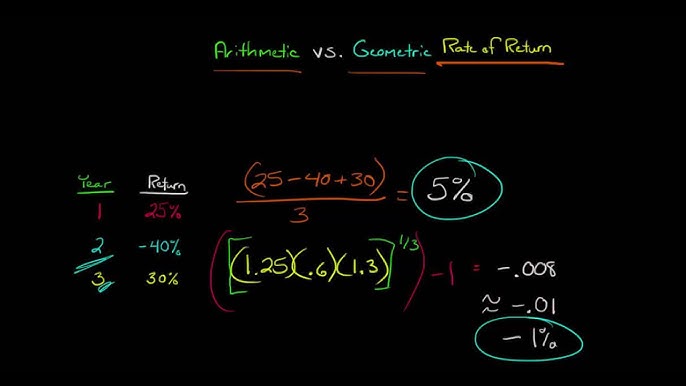 Arithmetic vs. Geometric Rate of Return
Year Return
1 25%
2 -40%
3 30%
(25 - 40 + 30) / 3 = 5%
([(1.25)(.6)(1.3)]^1/3) - 1 = -.008
≈ -.01
-1%